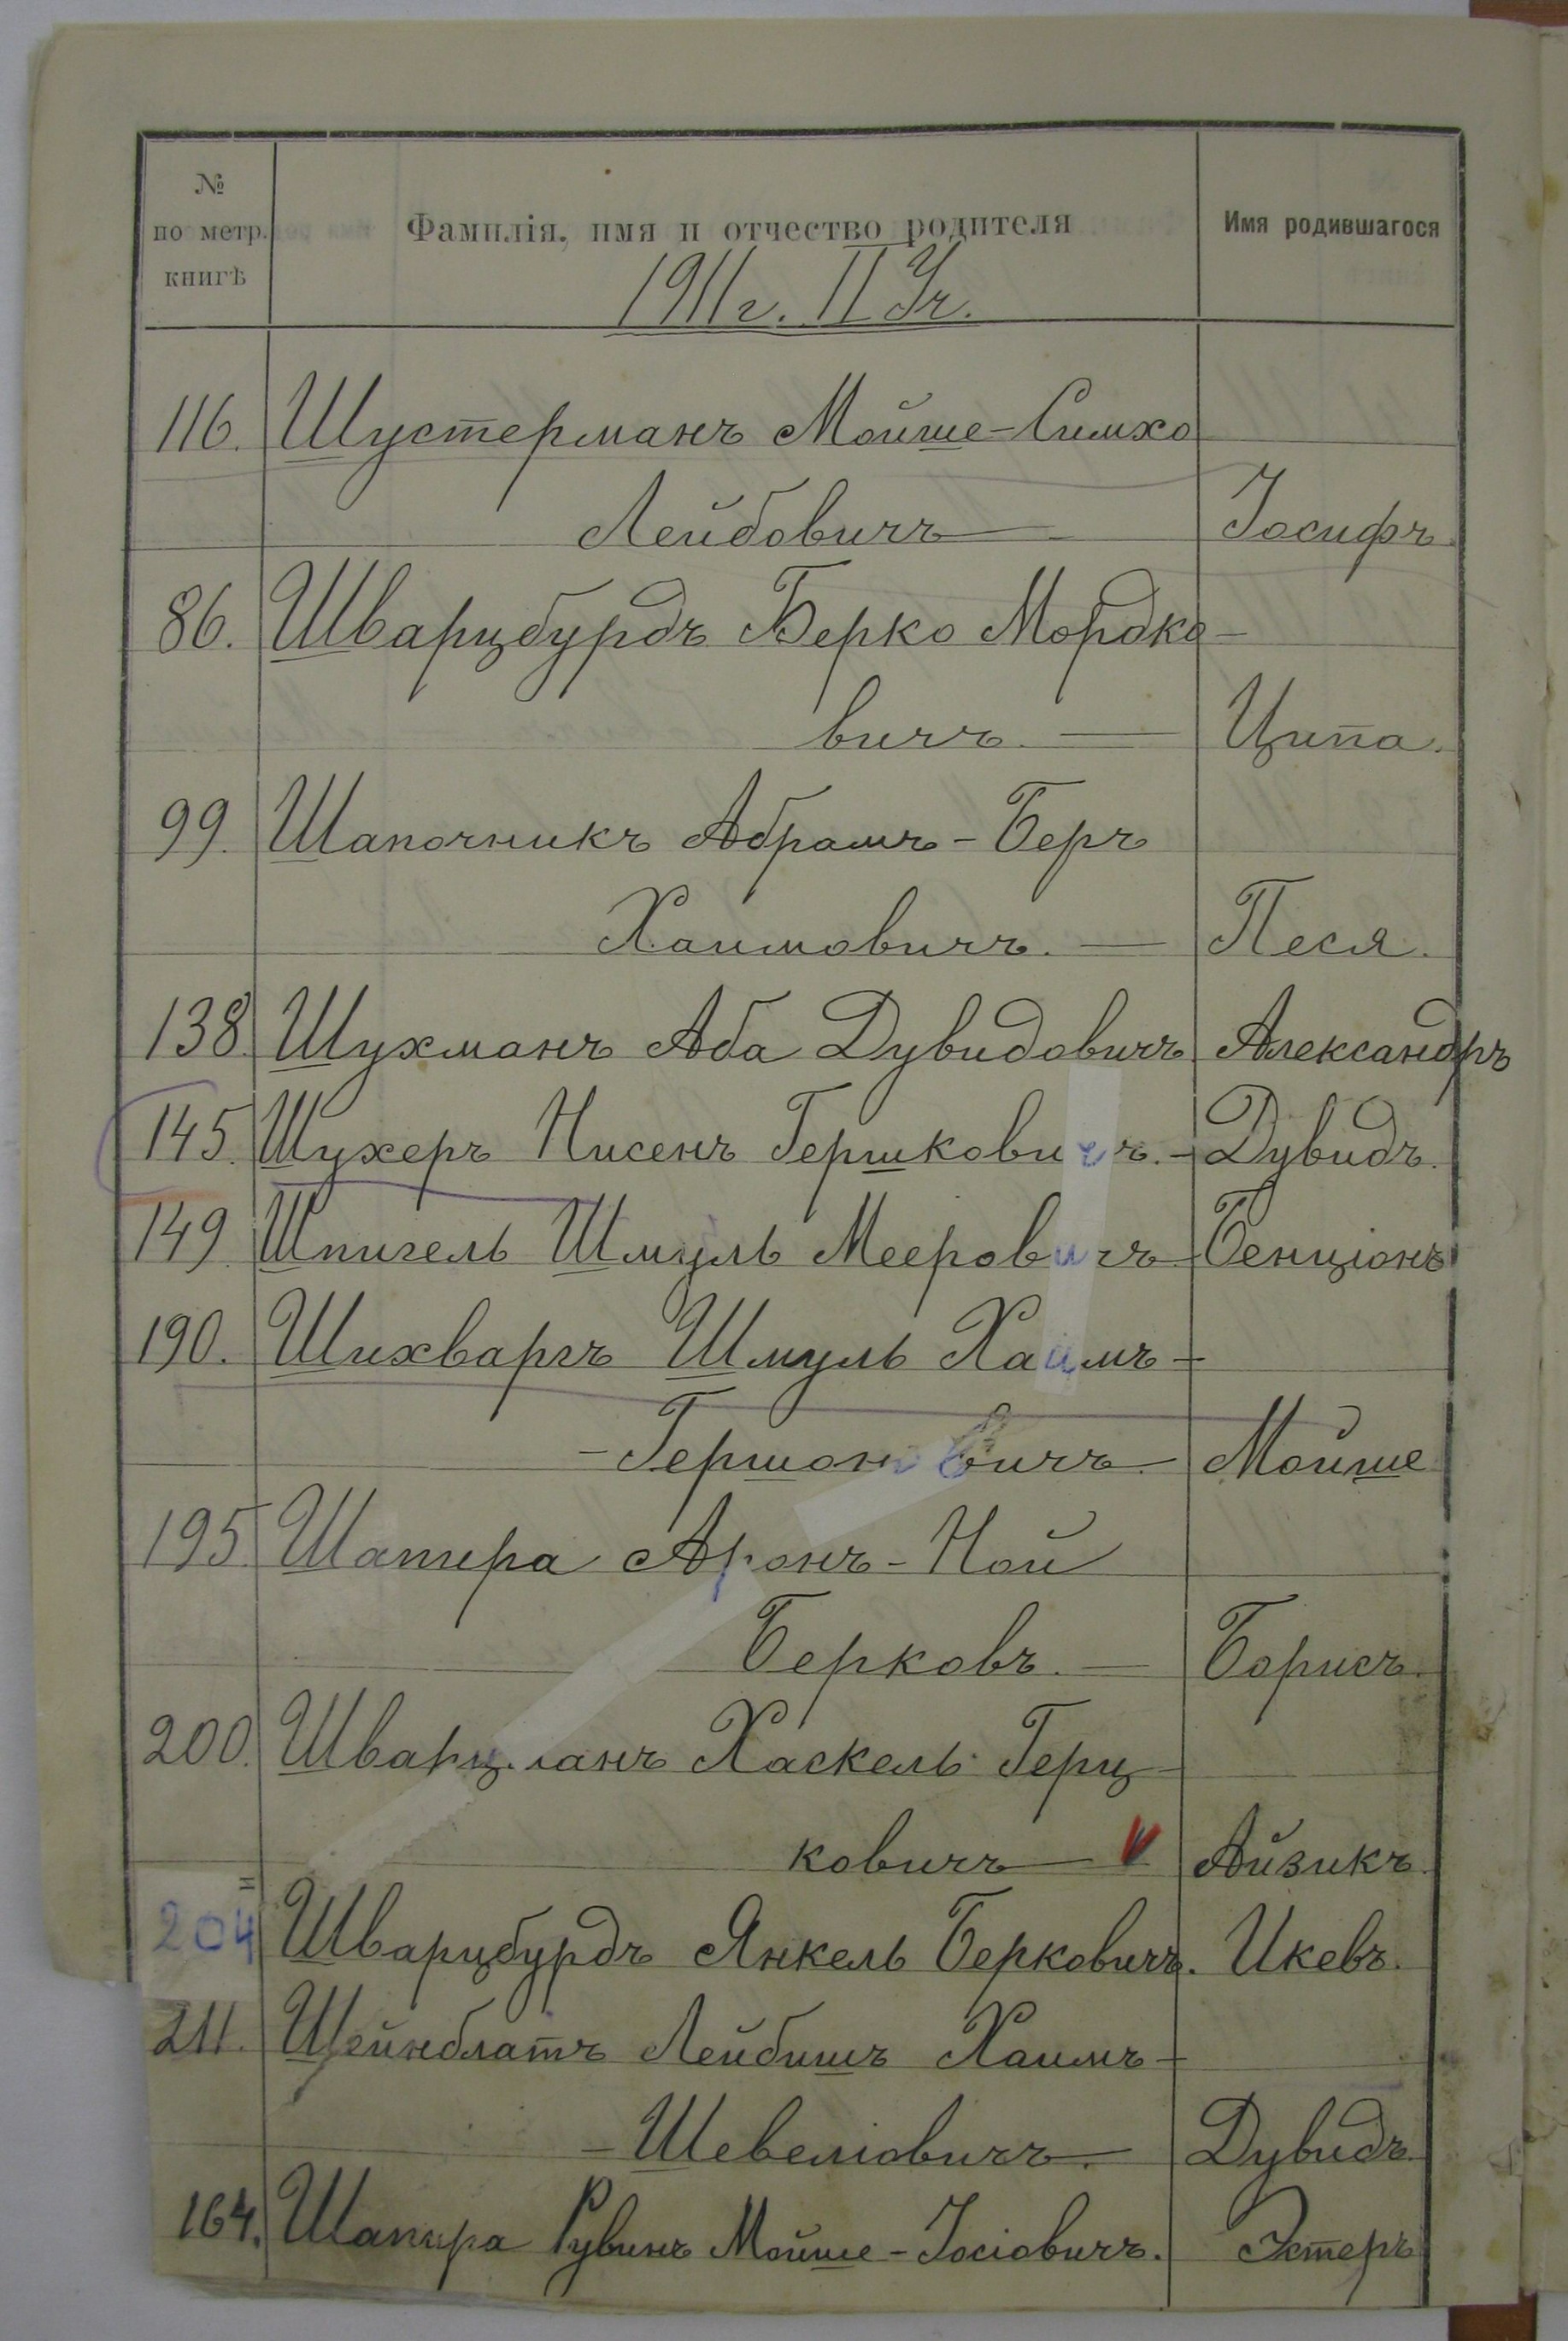 №
по метр.
книгѣ
Фамилія, имя и отчество родителя
Имя родившагося
1911г. II Уч.
116. Шустерманъ Мойше-Симхо
Лейбовичъ — Іосифъ.
86. Шварцбурдъ Берко Мордко-
вичъ. — Ципа.
99. Шапочникъ Абрамъ-Беръ
Хаимовичъ. — Песя.
138. Шухманъ Аба Дувидовичъ Александръ
145. Шухеръ Нисенъ Гершковичъ. - Дувидъ.
149 Шпигель Шмуль Мееровичъ - Бенціонъ
190. Шихваргъ Шмуль Хаимъ-
-Гершоновичъ. Мойше
195. Шапира Аронъ-Ной
Берковъ. — Борисъ.
200. Шварцманъ Хаскель Герц-
ковичъ — V Айзикъ.
204 Шварцбурдъ Янкель Берковичъ. Икевъ.
211. Шейнблатъ Лейбишъ Хаимъ-
-Шевеліовичъ. Дувидъ.
164. Шапира Рувинъ Мойше-Іосіовичъ. Эстеръ